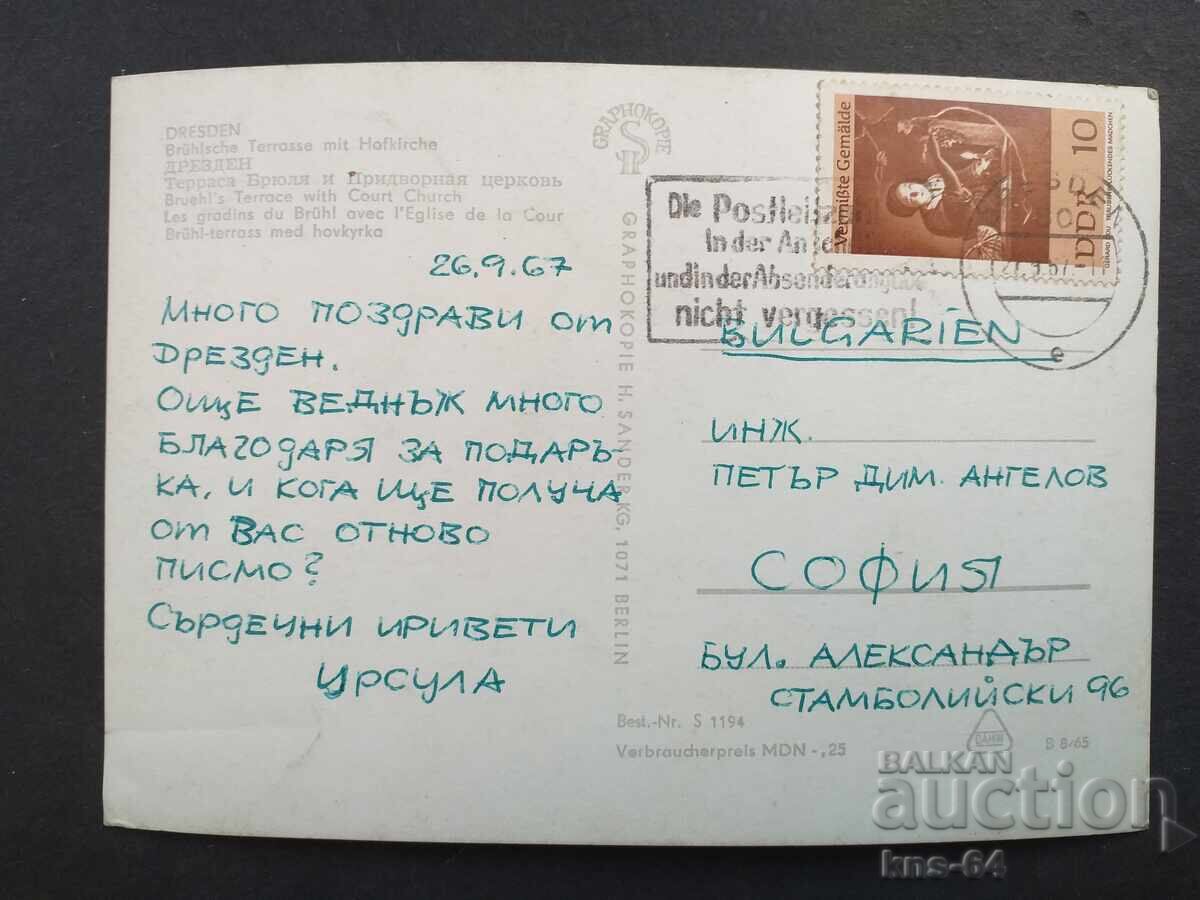 DRESDEN
Brühlsche Terrasse mit Hofkirche
ДРЕЗДЕН
Терраса Брюля и Придворная церковь
Bruehl's Terrace with Court Church
Les gradins du Brühl avec l'Eglise de la Cour
Brühl-terrass med hovkyrka
26.9.67
МНОГО ПОЗДРАВИ от
ДРЕЗДЕН.
ОЩЕ ВЕДНЪЖ МНОГО
БЛАГОДАРЯ ЗА ПОДАРЪ-
КА, И КОГА ЩЕ ПОЛУЧА
от ВАС ОТНОВО
ПИСМО?
СЪРДЕЧНИ ПРИВЕТИ
УРСУЛА
GRAPHOKOPIE
SH
GRAPHOKOPIE H. SANDER KG, 1071 BERLIN
Die
In der
und in der Absenderangabe
nicht vergessen!
Vermißte Gemälde
DDR 10
e
BULGARIEN
ИНЖ.
ПЕТЪР ДИМ. АНГЕЛОВ
СОФИЯ
БУЛ. АЛЕКСАНДЪР
СТАМБОЛИЙСКИ 96
Best.-Nr. S 1194
Verbraucherpreis MDN -,25
B 8/65
BALKAN
auction
kns-64